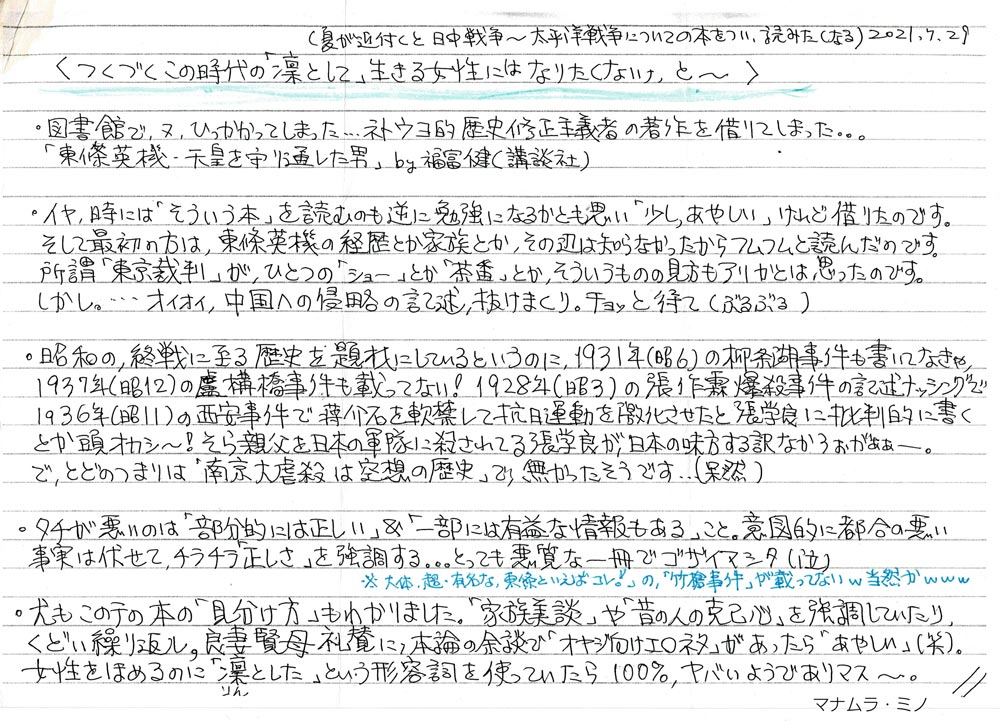 (夏が近付くと日中戦争〜太平洋戦争についての本をつい、読みたくなる) 2021.7.29
〈つくづくこの時代の「凛として」生きる女性にはなりたくないナ,と〜〉
・図書館で,又,ひっかかってしまった…ネトウヨ的歴史修正主義者の著作を借りてしまった。。。
「東條英機・天皇を守り通した男」by福冨健(講談社)
・イヤ,時には「そういう本」を読むのも逆に勉強になるかとも思い「少し,あやしい」けれど借りたのです。
そして最初の方は,東條英機の経歴とか家族とか,その辺は知らなかったからフムフムと読んだのです。
所謂「東京裁判」が,ひとつの「ショー」とか「茶番」とか,そういうものの見方もアリかとは,思ったのです。
しかし。…オイオイ,中国への侵略の記述,抜けまくり。チョッと待て(ぶるぶる)
・昭和の,終戦に至る歴史を題材にしているというのに,1931年(昭6)の柳条湖事件も書いてなきゃ,
1937年(昭12)の盧構橋事件も載ってない!1928年(昭3)の張作霖爆殺事件の記述ナッシングで
1936年(昭11)の西安事件で蒋介石を軟禁して抗日運動を激化させたと張学良に批判的に書く
とか頭オカシ〜!そら親父を日本の軍隊に殺されてる張学良が,日本の味方する訳なかろぉがぁぁー。
で,とどのつまりは「南京大虐殺は空想の歴史」で,無かったそうです…(呆然)
・タチが悪いのは「部分的には正しい」&「一部には有益な情報もある」こと。意図的に都合の悪い
事実は伏せて,チラチラ「正しさ」を強調する...とっても悪質な一冊でゴザイマシタ(泣)
※大体,超・有名な,東條といえばコレ!の,「竹槍事件」が載ってないw当然かwww
・尤もこのテの本の「見分け方」もわかりました。「家族美談」や「昔の人の克己心」を強調していたり,
くどい繰り返し。良妻賢母礼賛に,本論の余談で「オヤジ向けエロネタ」があったら「あやしい」(笑)。
女性をほめるのに「凛とした」という形容詞を使っていたら100%,ヤバいようでありマス〜。
りん
マナムラ・ミノ